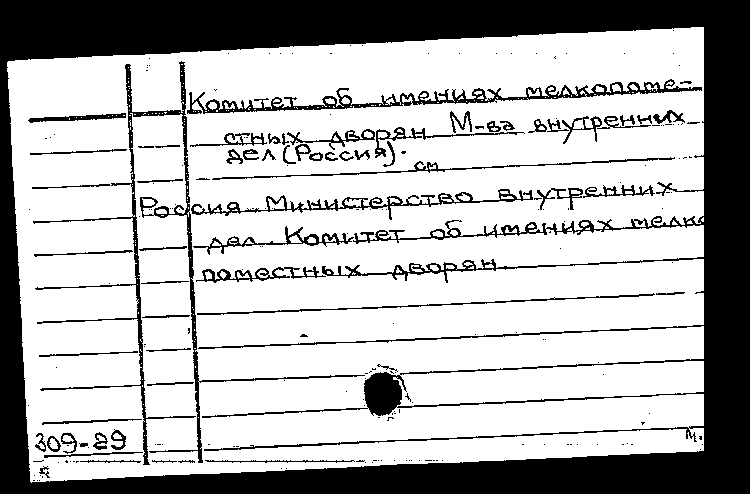 Комитет об имениях мелкопоме-
стных дворян М-ва внутренних
дел (Россия).
см
Россия. Министерство внутренних
дел. Комитет об имениях мелко
поместных дворян.
309-89
М.